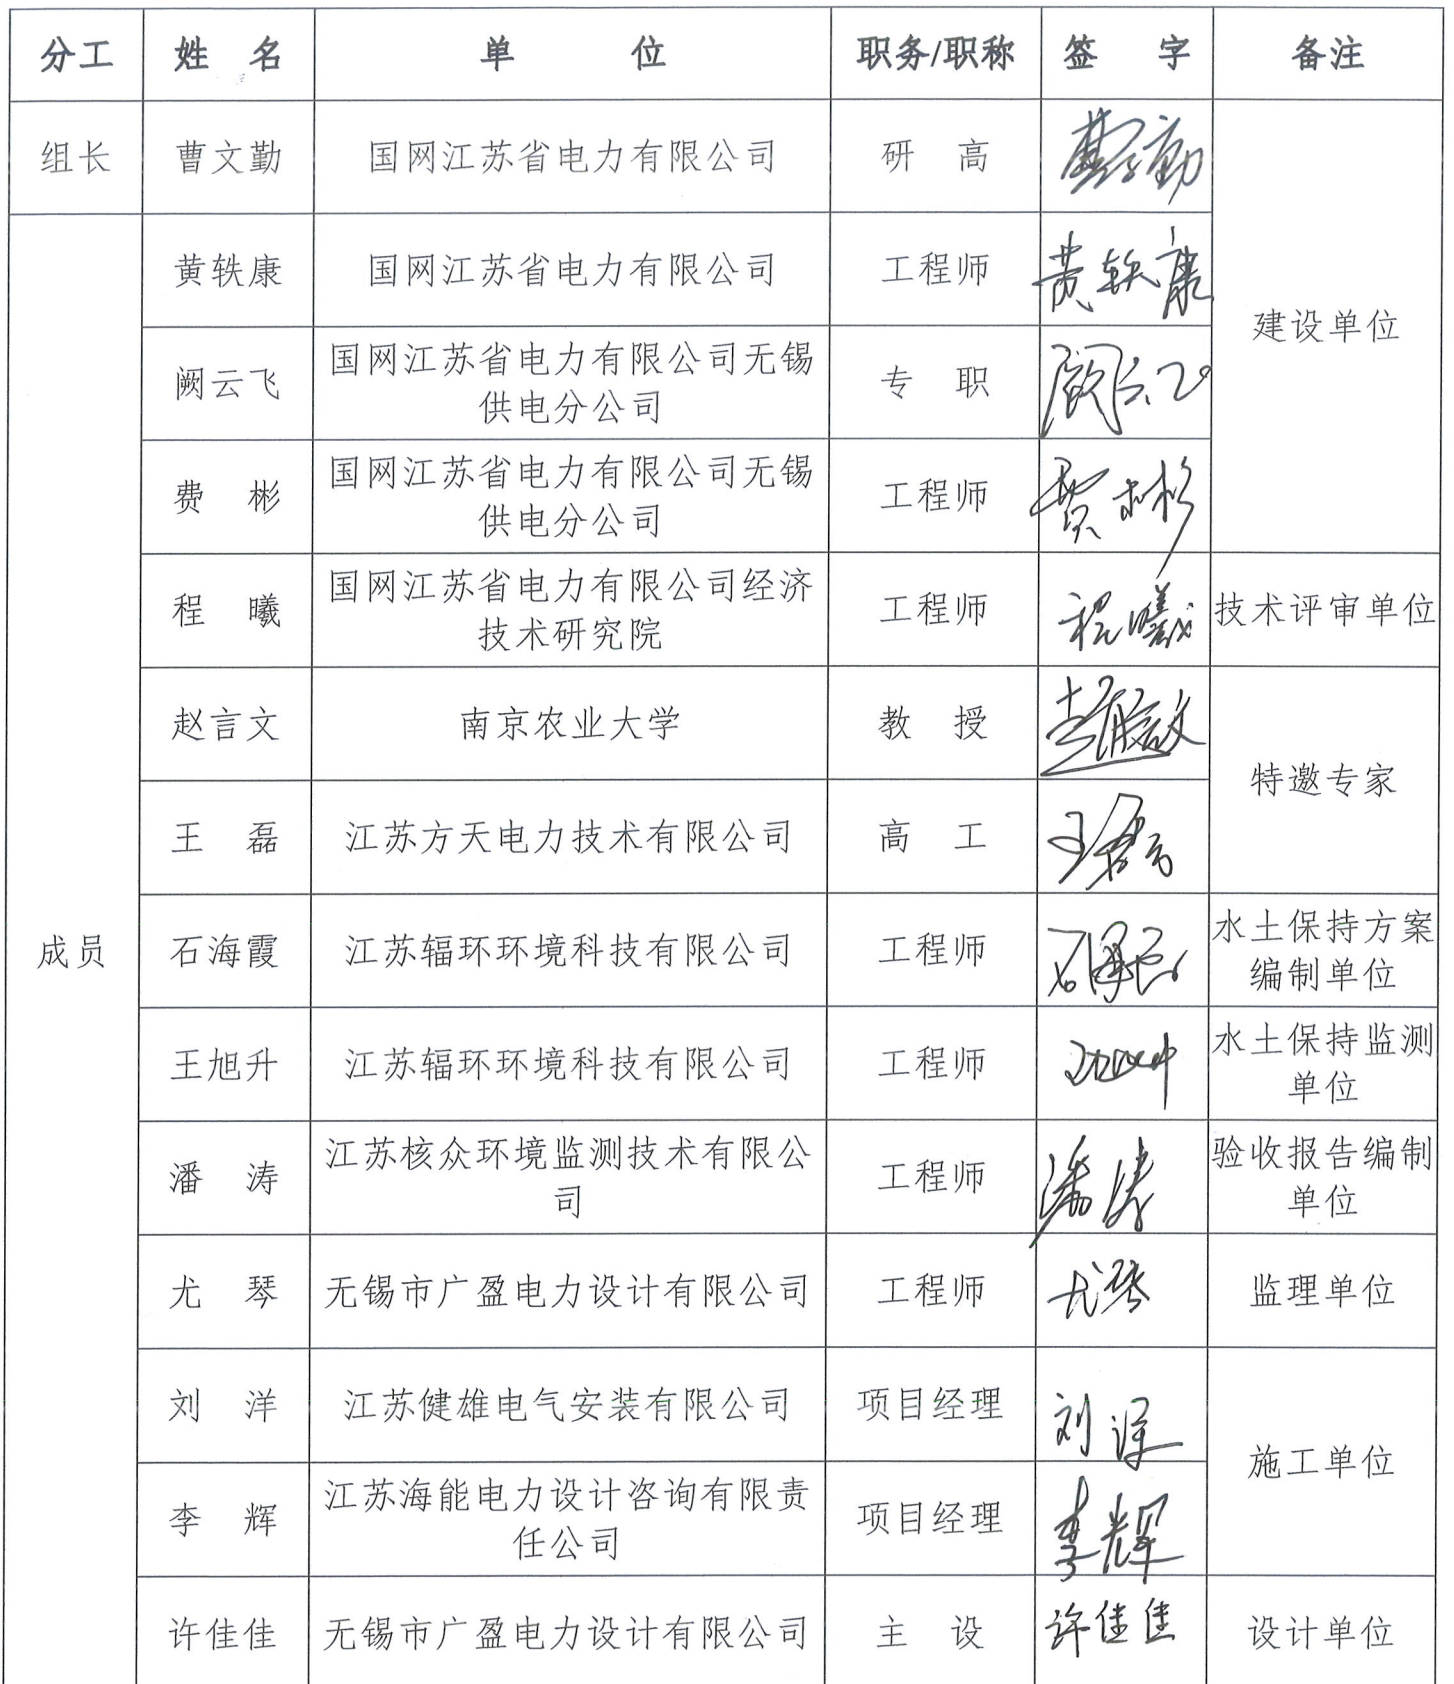 分工 姓 名 单 位 职务/职称 签 字 备注
组长 曹文勤 国网江苏省电力有限公司 研 高 曹文勤
黄轶康 国网江苏省电力有限公司 工程师 黄轶康
建设单位
阙云飞 国网江苏省电力有限公司无锡
供电分公司 专 职 阙云飞
费 彬 国网江苏省电力有限公司无锡
供电分公司 工程师 费彬
程 曦 国网江苏省电力有限公司经济
技术研究院 工程师 程曦 技术评审单位
赵言文 南京农业大学 教 授 赵言文
特邀专家
王 磊 江苏方天电力技术有限公司 高 工 王磊
成员 石海霞 江苏辐环环境科技有限公司 工程师 石海霞 水土保持方案
编制单位
王旭升 江苏辐环环境科技有限公司 工程师 水土保持监测
单位
潘 涛 江苏核众环境监测技术有限公
司 工程师 潘涛 验收报告编制
单位
尤 琴 无锡市广盈电力设计有限公司 工程师 尤琴 监理单位
刘 洋 江苏健雄电气安装有限公司 项目经理 刘洋
施工单位
李 辉 江苏海能电力设计咨询有限责
任公司 项目经理 李辉
许佳佳 无锡市广盈电力设计有限公司 主 设 许佳佳 设计单位